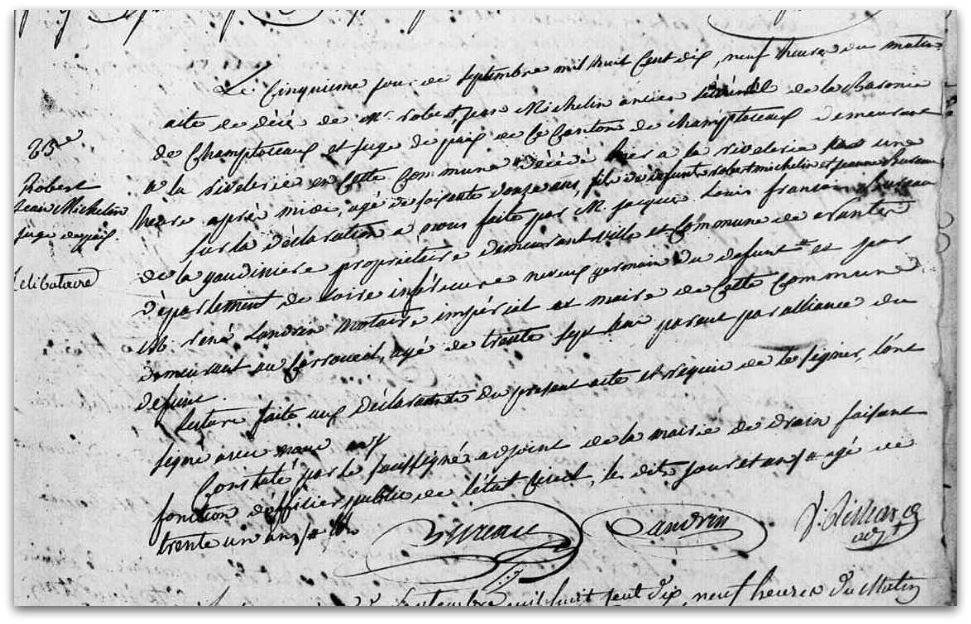 25e
Robert
jean Michelin
juge de paix
Celibataire
Le Cinquieme jour de septembre mil huit Cent dix, neuf heures du matin
acte de décè de Mr. robert jean Michelin ancien de la Baronie
de Champtoceaux et juge de paix de Ce Canton de champtoceaux demeurant
a la riveleric en Cette Commune décédé hier a la riveleric une
heure après midi, agé de soixante douze ans, fils de defunts robert michelin et jeanne
Sur la déclaration a nous faite par M. jacque Louis francois Bureau
de la gaudiniere propriétaire demeurant ville et Commune de Nantes
département de Loire inférieure neveux germain du defunt et par
M. rené Landrin Notaire impérial et maire de Cette Commune
demeurant au agé de trente sept ans parent par alliance du
défunt
Lecture faite aux déclarants du présent acte et requis de le signer, lont
signé avec nous
Constaté par le soussigné adjoint de la mairie de drain faisant
fonction d'officier public de l'état Civil, les dits jour et an # agé de
trente un ans #
Bureau Landrin
Septembre mil huit Cent dix neuf heures du Matin